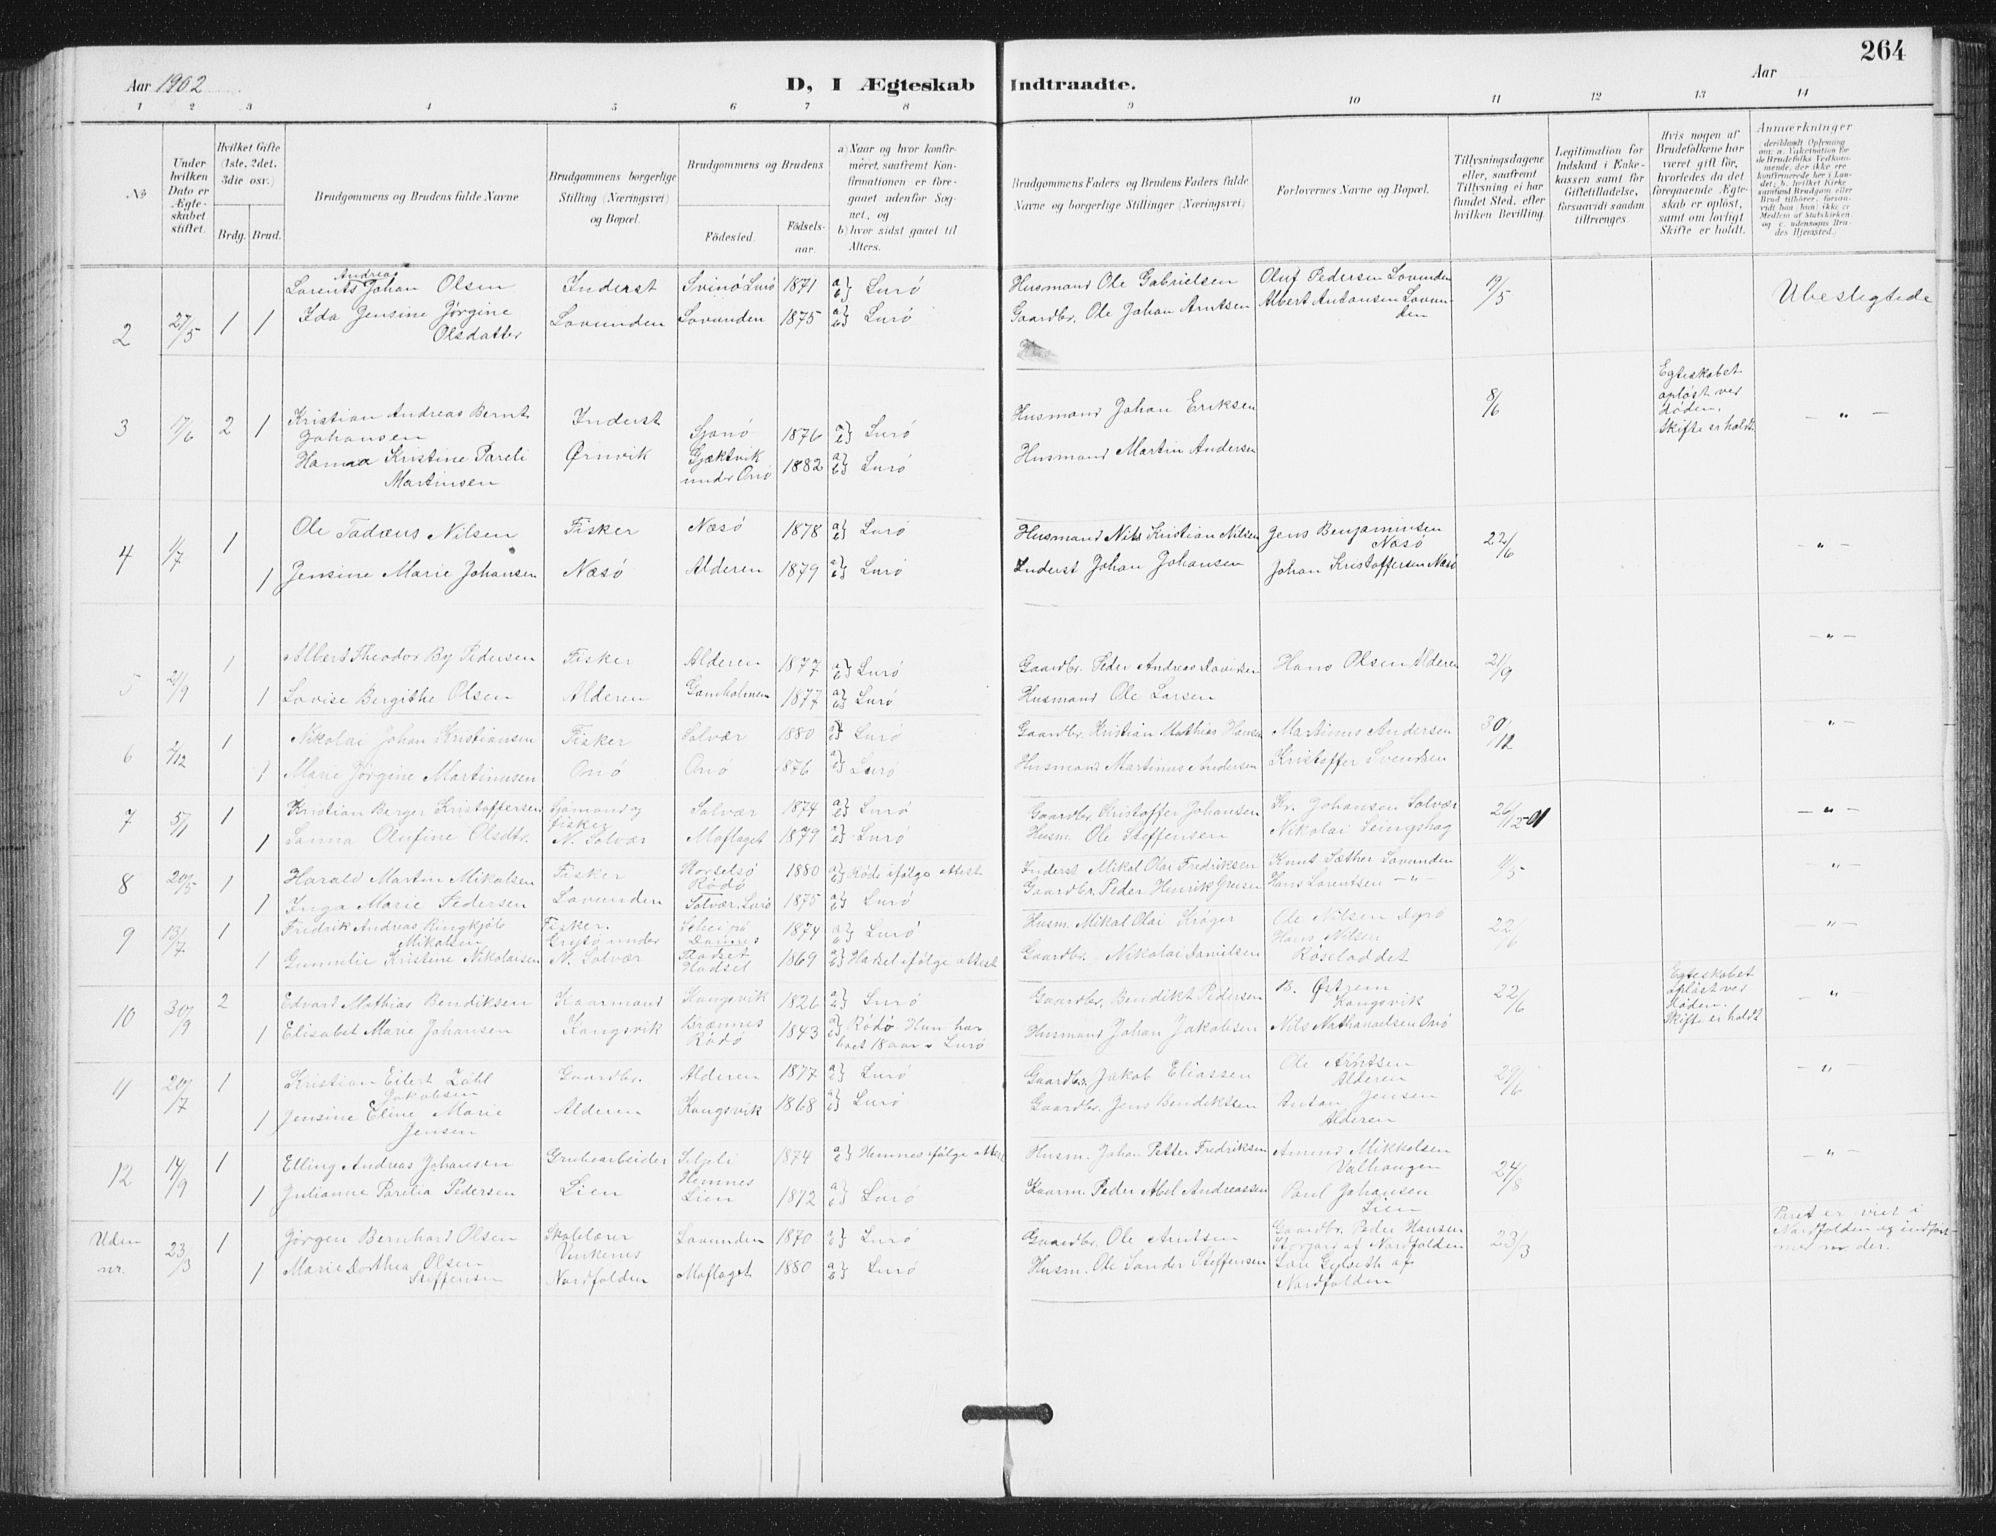 264
Aar 1902
D, I Ægteskab Indtraadte.
Aar
1 2 3 4 5 6 7 8 9 10 11 12 13 14
No
Under hvilken Dato er Ægteskabet stiftet.
Hvilket Gifte (1ste, 2det, 3die osv.)
Brdg. Brud.
Brudgommens og Brudens fulde Navne
Brudgommens borgerlige Stilling (Næringsvei) og Bopæl.
Brudgommens og Brudens
Fødested. Fødselsaar.
a) Naar og hvor konfirmeret, saafremt Konfirmationen er foregaaet udenfor Sognet, og
b) hvor sidst gaaet til Alters.
Brudgommens Faders og Brudens Faders fulde Navne og borgerlige Stillinger (Næringsvei)
Forlovernes Navne og Bopæl.
Tillysningsdagene eller, saafremt Tillysning ei har fundet Sted, efter hvilken Bevilling.
Legitimation for Indskud i Enkekassen samt for Giftetilladelse, forsaavidt saadan tiltrænges.
Hvis nogen af Brudefolkene har været gift før, hvorledes da det foregaaende Ægteskab er opløst, samt om lovligt Skifte er holdt.
Anmærkninger
2 27/5 1 1
Lorents Andreas Johan Olsen Inderst Svinö Lurö 1871 a) b) Lurö Husmand Ole Gabrielsen Oluf Pedersen Lovunden 19/5 Ubeslegtede
Ida Jensine Jørgine Olsdatter Lovunden Lovunden 1875 a) b) Lurö Gaardbr. Ole Johan Arntsen Albert Antonsen Lovunden
3 17/6 2 1
Kristian Andreas Bernt Johansen Inderst Sjonö 1876 a) b) Lurö Husmand Johan Eriksen 8/6 Egteskabet opløst ved døden. Skifte er holdt. — " —
Hanna Kristine Pareli Martinsen Ørnvik Gjæktvik under Onö 1882 a) b) Lurö Husmand Martin Andersen
4 1/7 1
Ole Tadæus Nilsen Fisker Næsö 1878 a) b) Lurö Husmand Nils Kristian Nilsen Jens Benjaminsen Næsö 22/6 — " —
1 Jensine Marie Johansen Næsö Alderen 1879 a) b) Lurö Inderst Johan Johansen Johan Kristoffersen Næsö
5 21/9 1
Albert Theodor By Pedersen Fisker Alderen 1877 a) b) Lurö Gaardbr. Peder Andreas Davidsen Hans Olsen Alderen 21/9 — " —
1 Lovise Bergithe Olsen Alderen 1877 a) b) Lurö Husmand Ole Larsen
6 1
Nikolai Johan Kristiansen Fisker Solvær 1880 a) b) Lurö Gaardbr. Kristian Mathias Hansen Martinus Andersen 30/12 — " —
1 Marie Jørgine Martinusen Onö Onö 1876 a) b) Lurö Husmand Martinus Andersen Kristoffer Svendsen
7 5/1 1
Kristian Berger Kristoffersen Sjömand og fisker Solvær 1874 a) b) Lurö Gaardbr. Kristoffer Johansen Kr. Johansen Solvær 26/12-01 — " —
1 Sanna Olufine Olsdtr. N. Solvær Moflaget 1879 a) b) Lurö Husm. Ole Steffensen Nikolai
8 20/5 1
Harald Martin Mikalsen Fisker Storselsö Rödö 1880 a) b) Rödö ifölge attest Inderst Mikal Olai Fredriksen Knut Sæther Lovunden 11/5 — " —
1 Inga Marie Pedersen Lovunden Solvær. Lurö 1875 a) b) Lurö Gaardbr. Peder Henrik Hans Lorentsen — " —
9 13/7 1
Fredrik Andreas Ringkjöb Mikalsen Fisker. under Dønnes 1874 a) b) Lurö Husm. Mikal Olai Krøger Ole Nilsen 22/6 — " —
1 Gunnelie Kristine Nikolaisen N. Solvær Hadsel 1869 a) b) Hadsel ifölge attest Gaardbr. Nikolai Danielsen Hans Nilsen
10 30/9 2
Edvard Mathias Bendiksen Kaarmand Kongsvik 1826 a) b) Lurö Gaardbr. Bendikt Pedersen B. Kongsvik 22/6 Egteskabet opløst ved døden. Skifte er holdt — " —
1 Elisabet Marie Johansen Kongsvik Rödö 1843 a) b) Rödö. Hun har boet 18 aar i Lurö Husmand Johan Jakobsen Nils Nathanaelsen Onö
11 20/7 1
Kristian Eilert Jakobsen Gaardbr. Alderen 1877 a) b) Lurö Gaardbr. Jakob Eliassen Ole Arntsen Alderen 29/6 — " —
1 Jensine Eline Marie Jensen Alderen Kongsvik 1868 a) b) Lurö Gaardbr. Jens Bendiktsen Anton Jensen Alderen
12 14/9 1
Elling Andreas Johansen Grubearbeider Seljeli Hemnes 1874 a) b) Hemnes ifölge attest Husm. Johan Petter Fredriksen Amund Mikkelsen Valhaugen 24/8 — " —
1 Julianne Parelia Pedersen Lien Lien 1872 a) b) Lurö Kaarm. Peder Abel Andreassen Paul Johansen Lien
Uden nr. 23/3 1
Jørgen Bernhard Olsen Skolelærer Lovunden 1870 a) b) Lurö Gaardbr. Ole Arntsen Gaardbr. Peder Hansen Storjord af Nordfolden 23/3 Paret er viet i Nordfolden og indført med nr. der.
1 Marie Dorthea Olsen Steffensen Nordfolden Moflaget 1880 a) b) Lurö Husm. Ole Sander Steffensen Lars Gylseth af Nordfolden